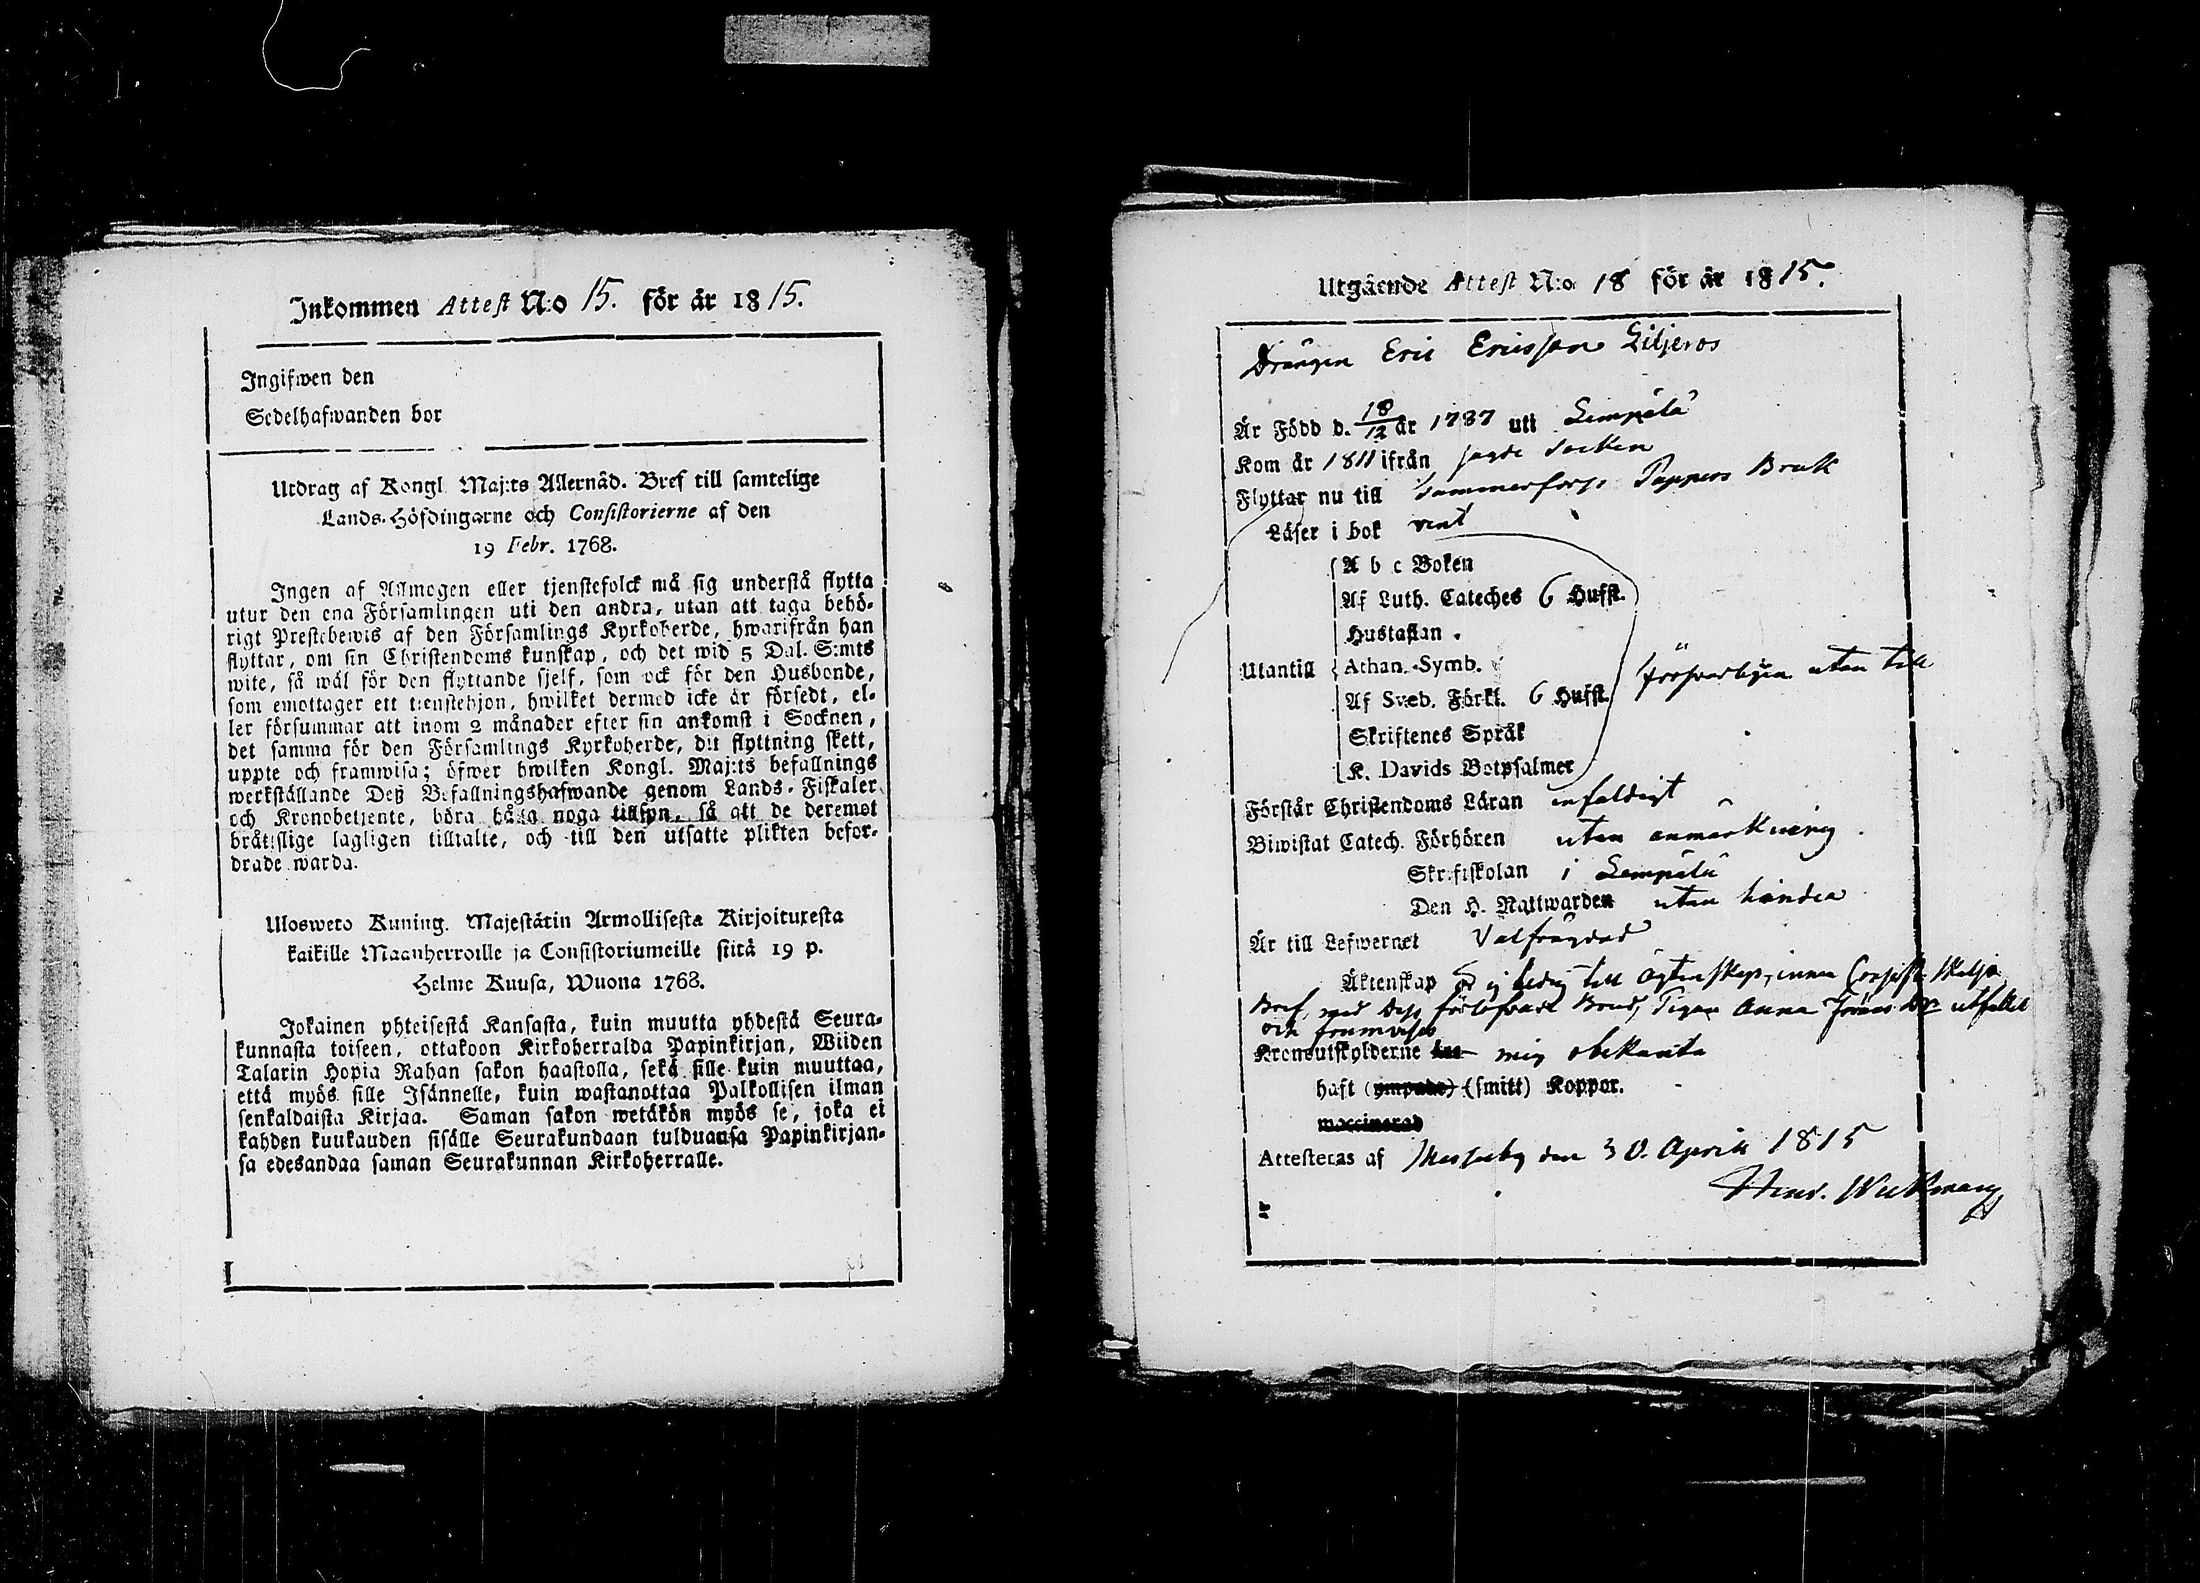 Inkommen Attest N:o 15. för år 1815.
Ingifwen den
Sedelhafwanden bor
Utdrag af Kongl. Maj:ts Allernåd. Bref till samtelige
Lands-Höfdingarne och Consistorierne af den
19 Febr. 1768.
Ingen af Allmogen eller tjenstefolck må sig understå flytta
utur den ena Församlingen uti den andra, utan att taga behö-
rigt Prestebewis af den Församlings Kyrkoherde, hwarifrån han
flyttar, om sin Christendoms kunskap, och det wid 5 Dal. S:mts
wite, så wäl för den flyttande sjelf, som ock för den Husbonde,
som emottager ett tjenstehjon, hwilket dermed icke är försedt, el-
ler försummar att inom 2 månader efter sin ankomst i Socknen,
det samma för den Församlings Kyrkoherde, dit flyttning skett,
uppte och framwisa; öfwer hwilken Kongl. Maj:ts befallnings
werkställande Deß Befallningshafwande genom Lands-Fiskaler
och Kronobetjente, böra hålla noga tillsyn, så att de deremot
bråtslige lagligen tilltalte, och till den utsatte plikten befor-
drade warda.
Ulosweto Kuning. Majestätin Armollisesta Kirjoituxesta
kaikille Maanherroille ja Consistoriumeille siitä 19 p.
Helme Kuusa, Wuona 1768.
Jokainen yhteisestä Kansasta, kuin muutta yhdestä Seura-
kunnasta toiseen, ottakoon Kirkoherralda Papinkirjan, Wiiden
Talarin Hopia Rahan sakon haastolla, sekä sille kuin muuttaa,
että myös sille Isännelle, kuin wastanottaa Palkollisen ilman
senkaldaista Kirjaa. Saman sakon wetäkön myös se, joka ei
kahden kuukauden sisälle Seurakundaan tulduansa Papinkirjan-
sa edesandaa saman Seurakunnan Kirkoherralle.
Utgående Attest N:o 18 för år 1815.
Drängen Eric Ericsson Liljeros
Är Född d. 18/12 år 1787 uti Lempälä
Kom år 1811 ifrån sagde Socken
Flyttar nu till Tammerfors Pappers Bruk
Läser i bok rent
A b c Boken
Af Luth. Cateches 6 Hufst.
Hustaflan
Utantill Athan. Symb.
Af Sveb. Förkl. 6 Hufst. försvarligen utan till
Skriftenes Språk
K. Davids Botpsalmer
Förstår Christendoms Läran enfaldigt
Biwistat Catech. Förhören utan anmärkning.
Skriftskolan i Lempälä
Den H. Nattwarden utan hinder
Är till Lefwernet Välfrägdad
Äktenskap ej ledig till ägtenskap, innan Consist. skiljo
Bref, med dess förlofvade Brud, Pigan Anna Jöransdr utfallit
och framvises
Kronoutskylderne mig obekanta
haft (ympade) (smitt) Koppor.
waccinerad
Attesteras af Messuby den 30. April 1815
Henr. Wickman